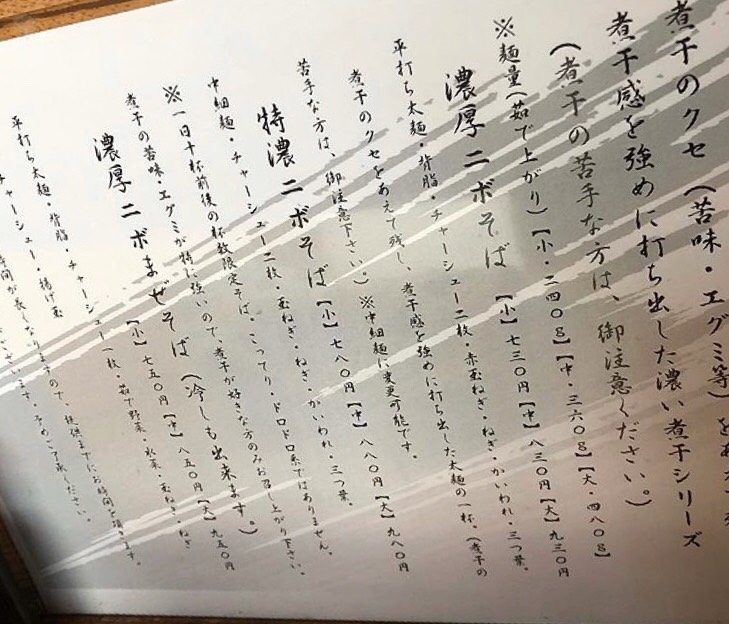 煮干のクセ(苦味・エグミ等)をあえて残
煮干感を強めに打ち出した濃い煮干シリーズ
(煮干の苦手な方は、御注意ください。)
※麺量(茹で上がり)【小・二四〇g】【中・三六〇g】【大・四八〇g】
濃厚ニボそば【小】七三〇円【中】八三〇円【大】九三〇円
平打ち太麺・背脂・チャーシュー二枚・赤玉ねぎ・ねぎ・かいわれ・三つ葉。
煮干のクセをあえて残し、煮干感を強めに打ち出した太麺の一杯。(煮干の
苦手な方は、御注意下さい。)※中細麺に変更可能です。
特濃ニボそば【小】七八〇円【中】八八〇円【大】九八〇円
中細麺・チャーシュー二枚・玉ねぎ・ねぎ・かいわれ・三つ葉。
※一日十杯前後の杯数限定そば、こってり・ドロドロ系ではありません。
煮干の苦味・エグミが特に強いので、煮干が好きな方のみお召し上がり下さい。
濃厚ニボまぜそば(冷しも出来ます。)
【小】七五〇円【中】八五〇円【大】九五〇円
平打ち太麺・背脂・チャーシュー一枚・茹で野菜・水菜・玉ねぎ・ねぎ
チャーシュー・揚げ玉
時間が長くなりますので、提供までにお時間を頂きます。
ございます。予めご了承ください。